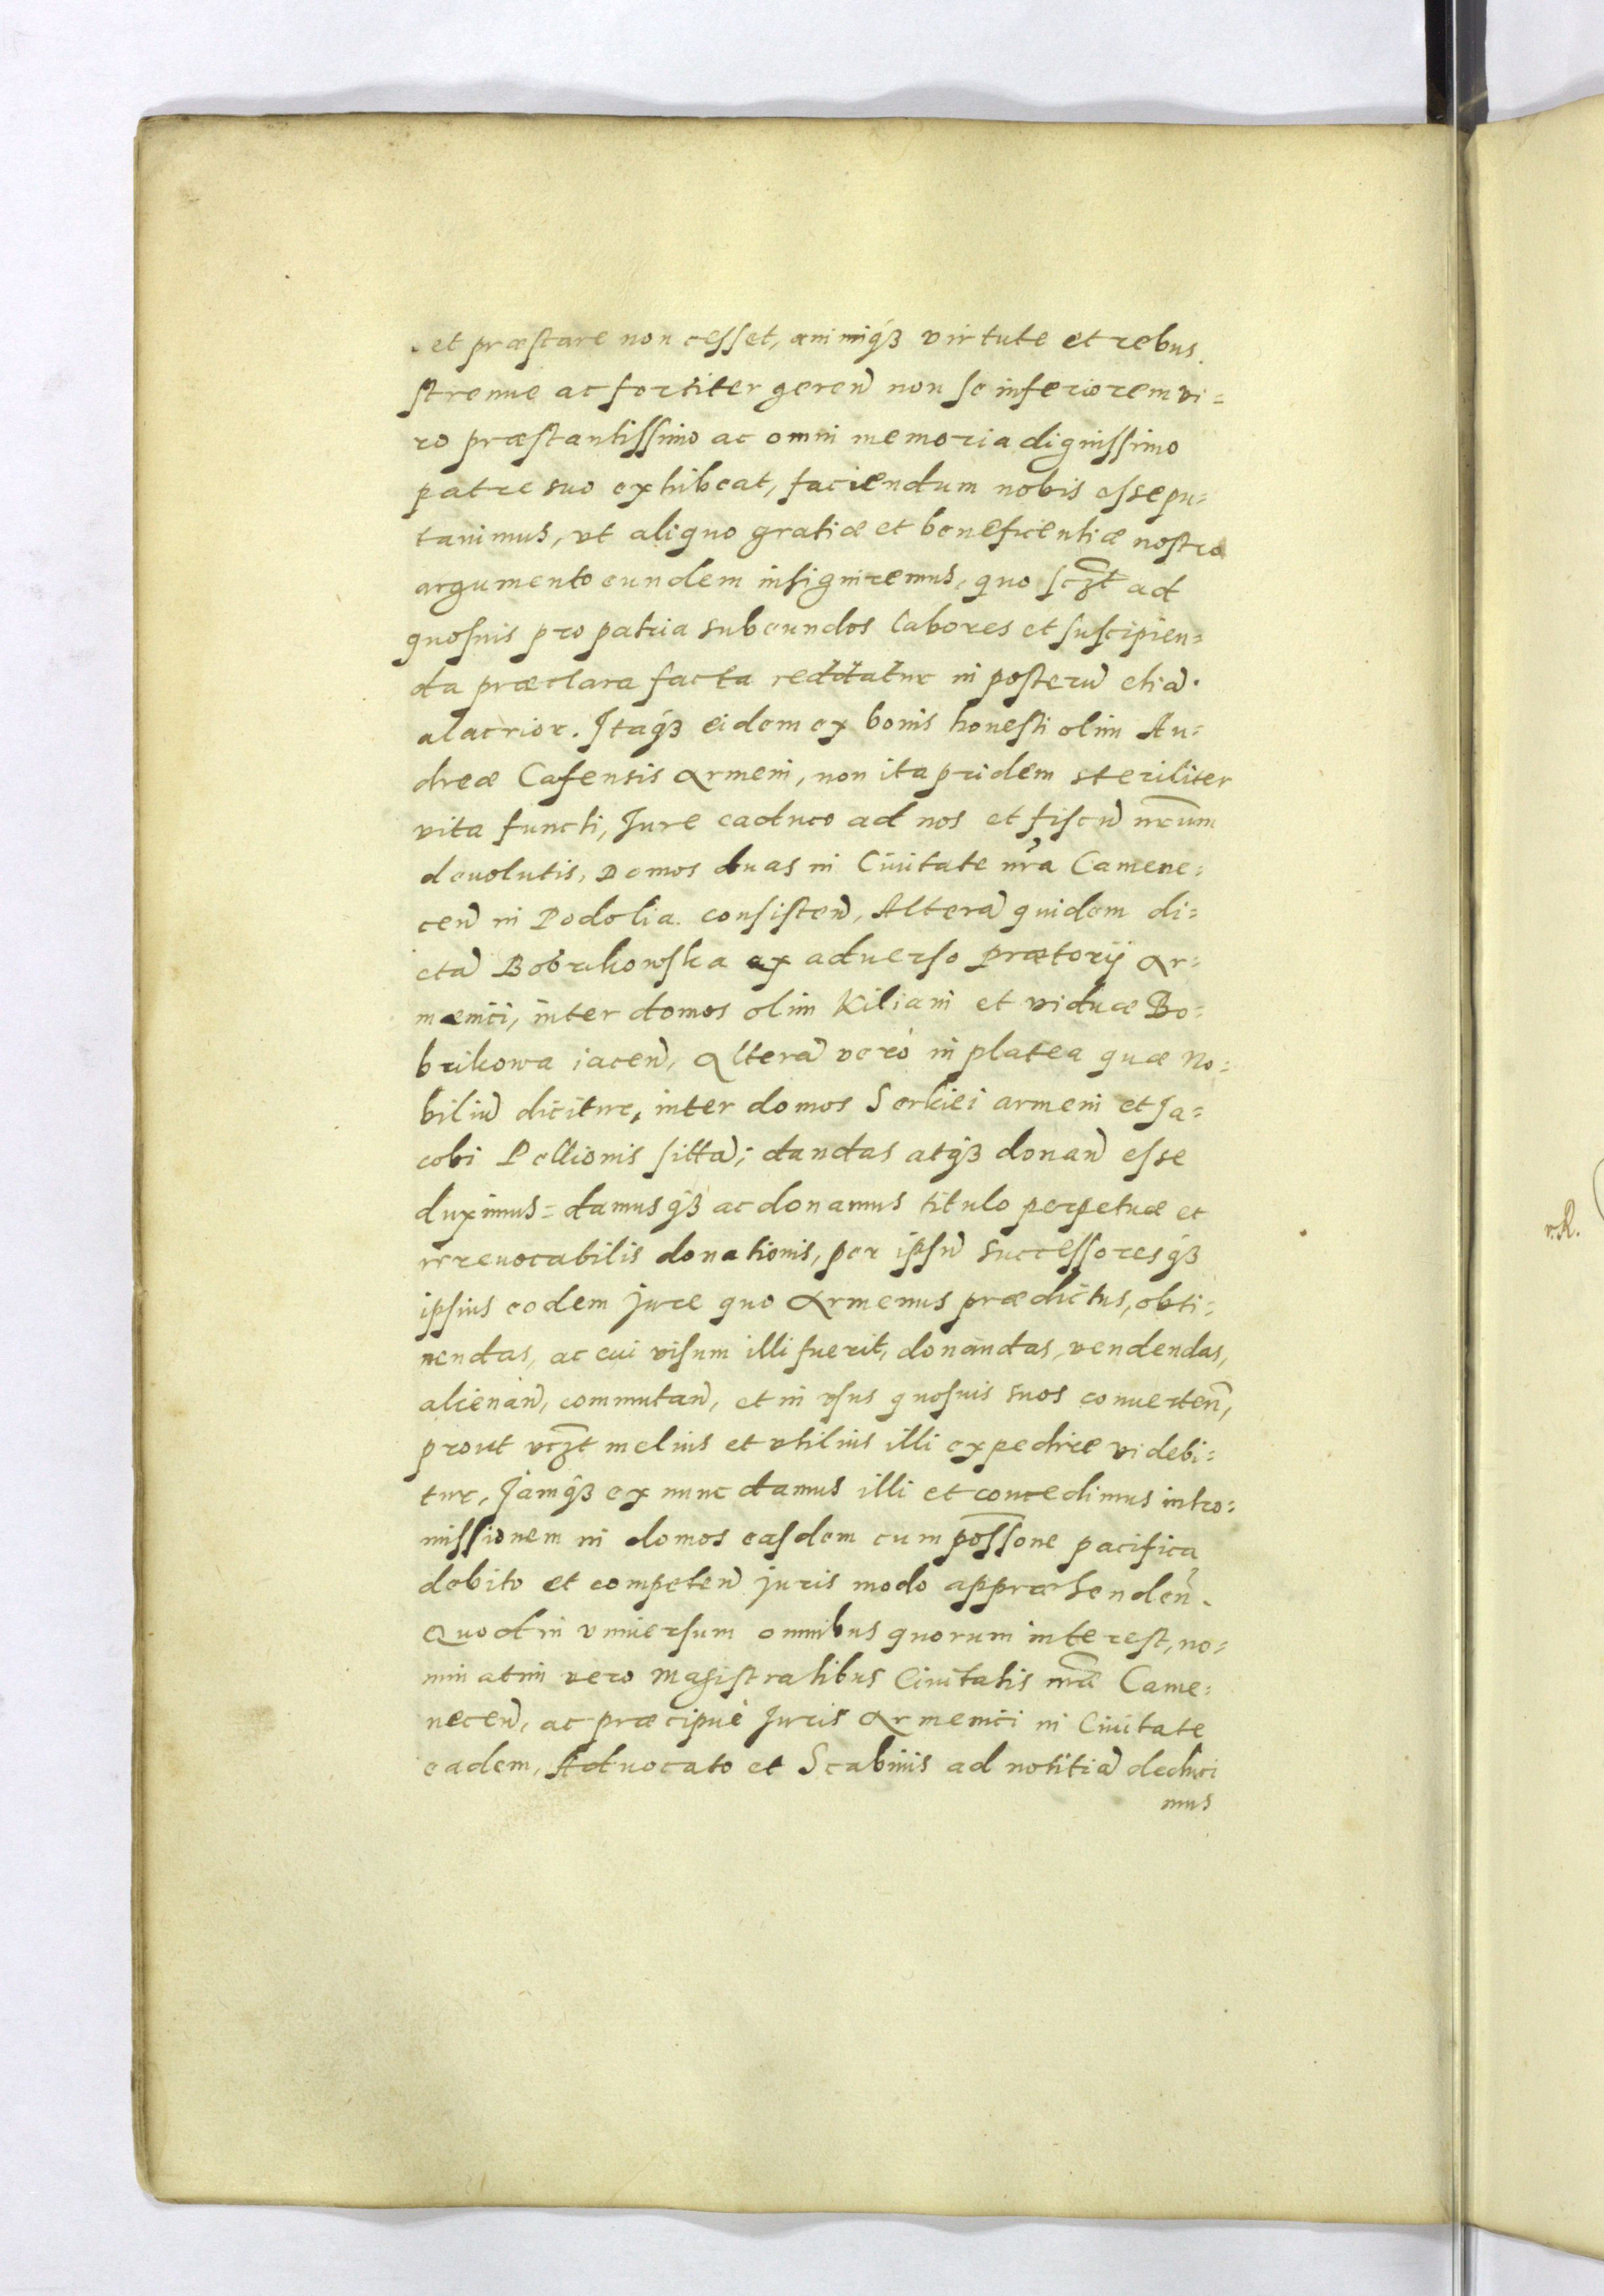 et præstare non cesset, animiq́ꝫ virtute et rebus
strenue ac fortiter geren̄ non se inferiorem vi=
ro præstantissimo ac omni memoria dignissimo
patre suo exhibeat, faciendum nobis esse pu=
tauimus, vt aliquo gratiæ et beneficentiæ nostræ
argumento eundem insigniremus, quo scꝫt ad
quosuis pro patria subeundos labores et suscipien=
da præclara facta reddatur in posterū etiā
alacrior. Itaq́ꝫ eidem ex bonis honesti olim An=
dreæ Cafensis Armeni, non ita pridem steriliter
vita functi, Jure caduco ad nos et fiscū nr̄um
deuolutis, Domos duas in Ciuitate nr̄a Camene=
cen̄ in Podolia consisten̄, Alterā quidem di=
ctā Bobrikowska ex aduerso prætorij Ar=
mænici, inter domos olim Kiliani et viduæ Bo=
brikowa iacen̄, Alterā verò in platea quæ No=
biliū dicitur, inter domos Serkiei armeni et Ja=
cobi Pellionis sittā; dandas atq́ꝫ donan̄ esse
duximus = damusq́ꝫ ac donamus titulo perpetuæ et
irreuocabilis donationis, per ipsū successoresq́ꝫ
ipsius eodem jure quo Armenus prædictus, obti=
nendas, ac cui visum illi fuerit, donandas, vendendas,
alienan̄, commutan̄, et in vsus quosuis suos conuerten̄,
prout vcꝫt melius et vtilius illi expedire videbi=
tur, Jamq́ꝫ ex nunc damus illi et concedimus intro=
missionem in domos easdem cum poss̄one pacifica
debito et competen̄ juris modo appræhenden̄.
Quod in vniuersum omnibus quorum interest, no=
minatim vero Magistratibus Ciuitatis nr̄æ Came=
necen̄, ac præcipuè Juris Armenici in Ciuitate
eadem, Aduocato et Scabinis ad notitiā deduci
mus